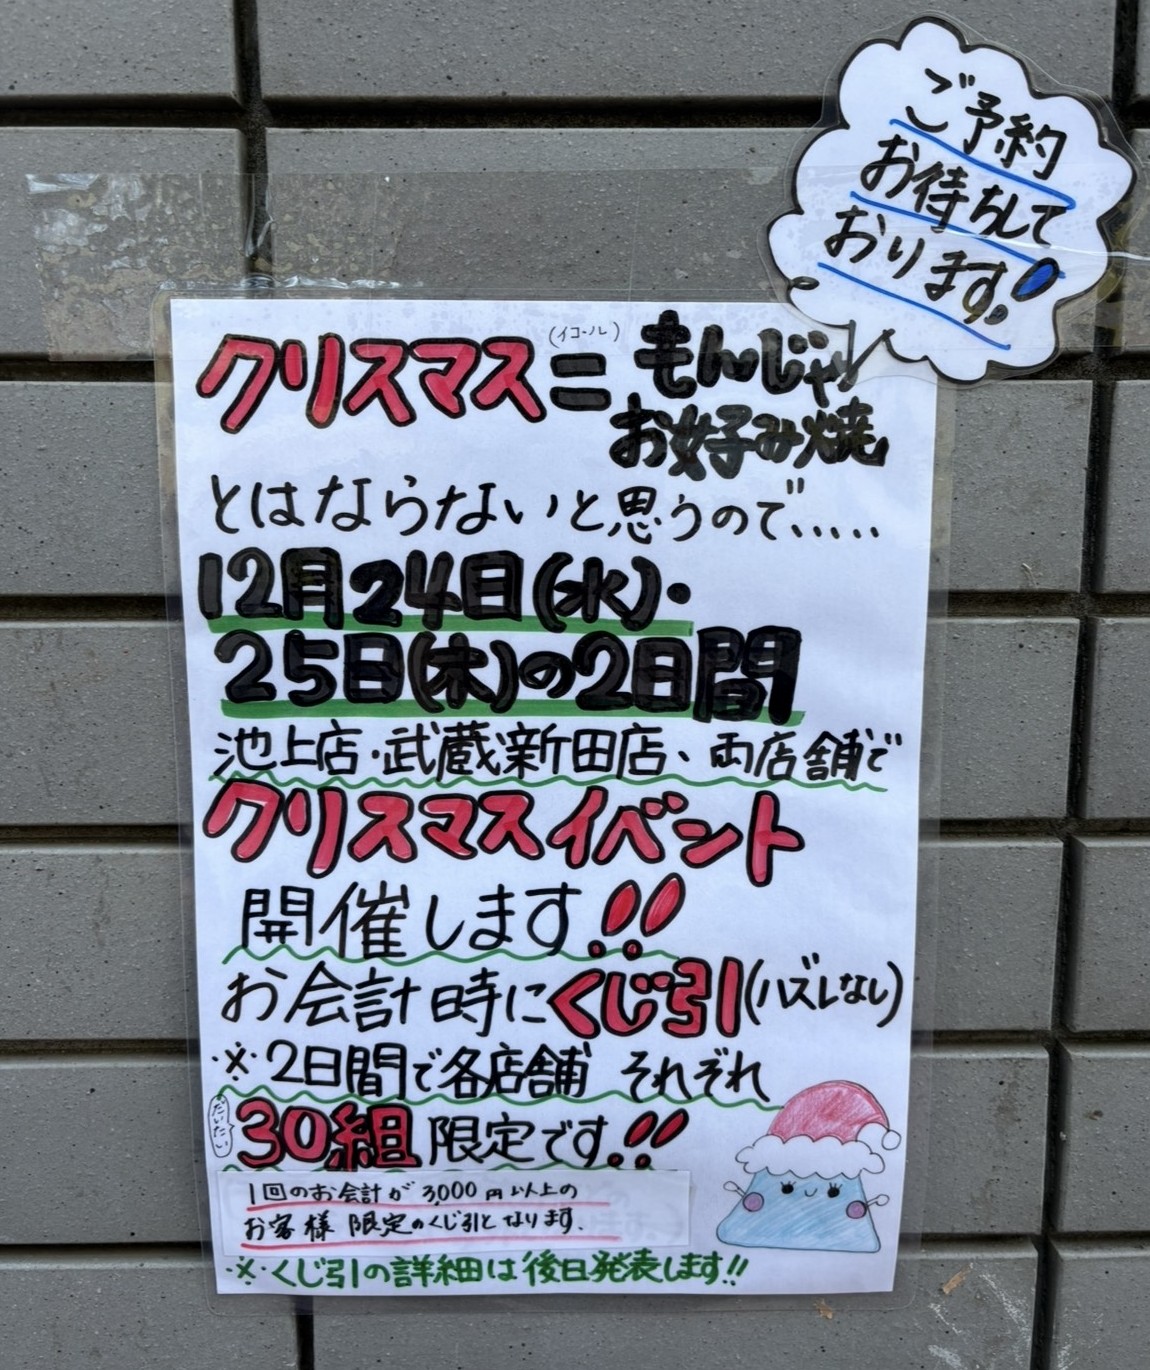 ご予約
お待ちして
おります!
クリスマス=もんじゃ
(イコール)
お好み焼
とはならないと思うので.....
12月24日(水)・
25日(木)の2日間
池上店・武蔵新田店、両店舗で
クリスマスイベント
開催します!!
お会計時にくじ引(ハズレなし)
※2日間で各店舗 それぞれ
だいたい
30組限定です!!
1回のお会計が3,000円以上の
お客様限定のくじ引となります.
※くじ引の詳細は後日発表します!!